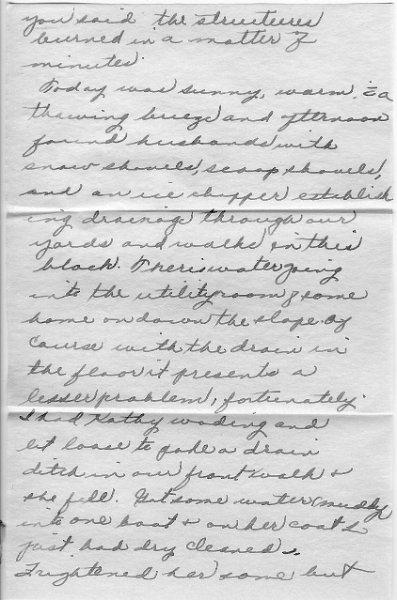 you said the structures
burned in a matter of
minutes.
Today was sunny, warm, & a
thawing breeze and afternoon
found husbands with
snow shovels, scoop shovels,
and an ice chopper establish
ing drainage through our
yards and walks in this
block. Ther is water going
into the utility room of some
home on down the slope. Of
course with the drain in
the floor it presents a
lesser problem, fortunately.
I had Kathy wading and
let loose to poke a drain
ditch in our front walk &
she fell. Got some water (muddy)
into one boot & on her coat I
just had dry cleaned.
Frightened her some but